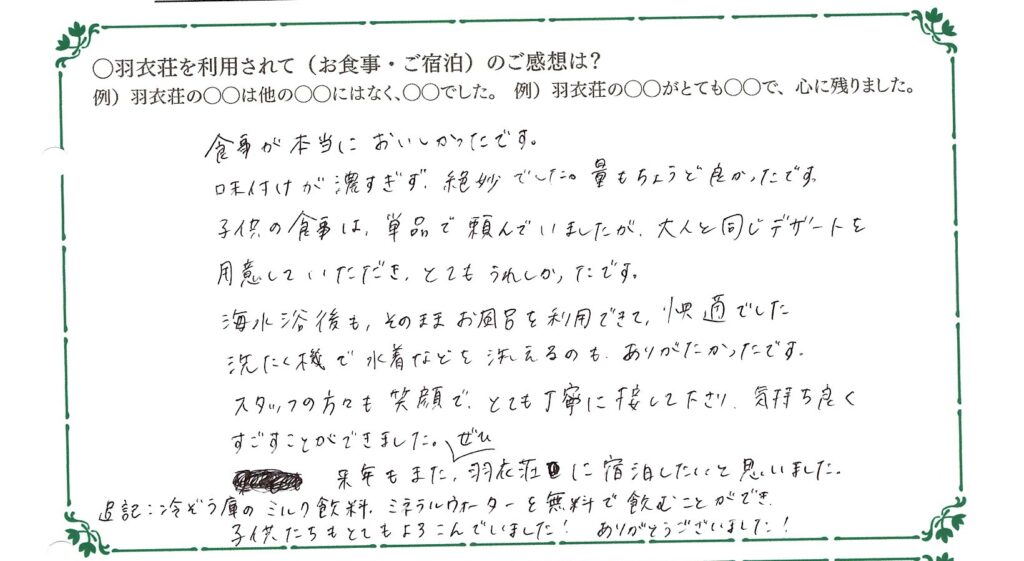 〇羽衣荘を利用されて（お食事・ご宿泊）のご感想は？
例）羽衣荘の〇〇は他の〇〇にはなく、〇〇でした。 例）羽衣荘の〇〇がとても〇〇で、心に残りました。
食事が本当においしかったです。
味付けが濃すぎず、絶妙でした。量もちょうど良かったです。
子供の食事は、単品で頼んでいましたが、大人と同じデザートを
用意していただき、とてもうれしかったです。
海水浴後も、そのままお風呂を利用できて、快適でした
洗たく機で水着などを洗えるのも、ありがたかったです。
スタッフの方々も笑顔で、とても丁寧に接して下さり、気持ち良く
すごすことができました。
来年もまた、ぜひ羽衣荘に宿泊したいと思いました。
追記：冷ぞう庫のミルク飲料、ミネラルウォーターを無料で飲むことができ、
子供たちもとてもよろこんでいました！ ありがとうございました！